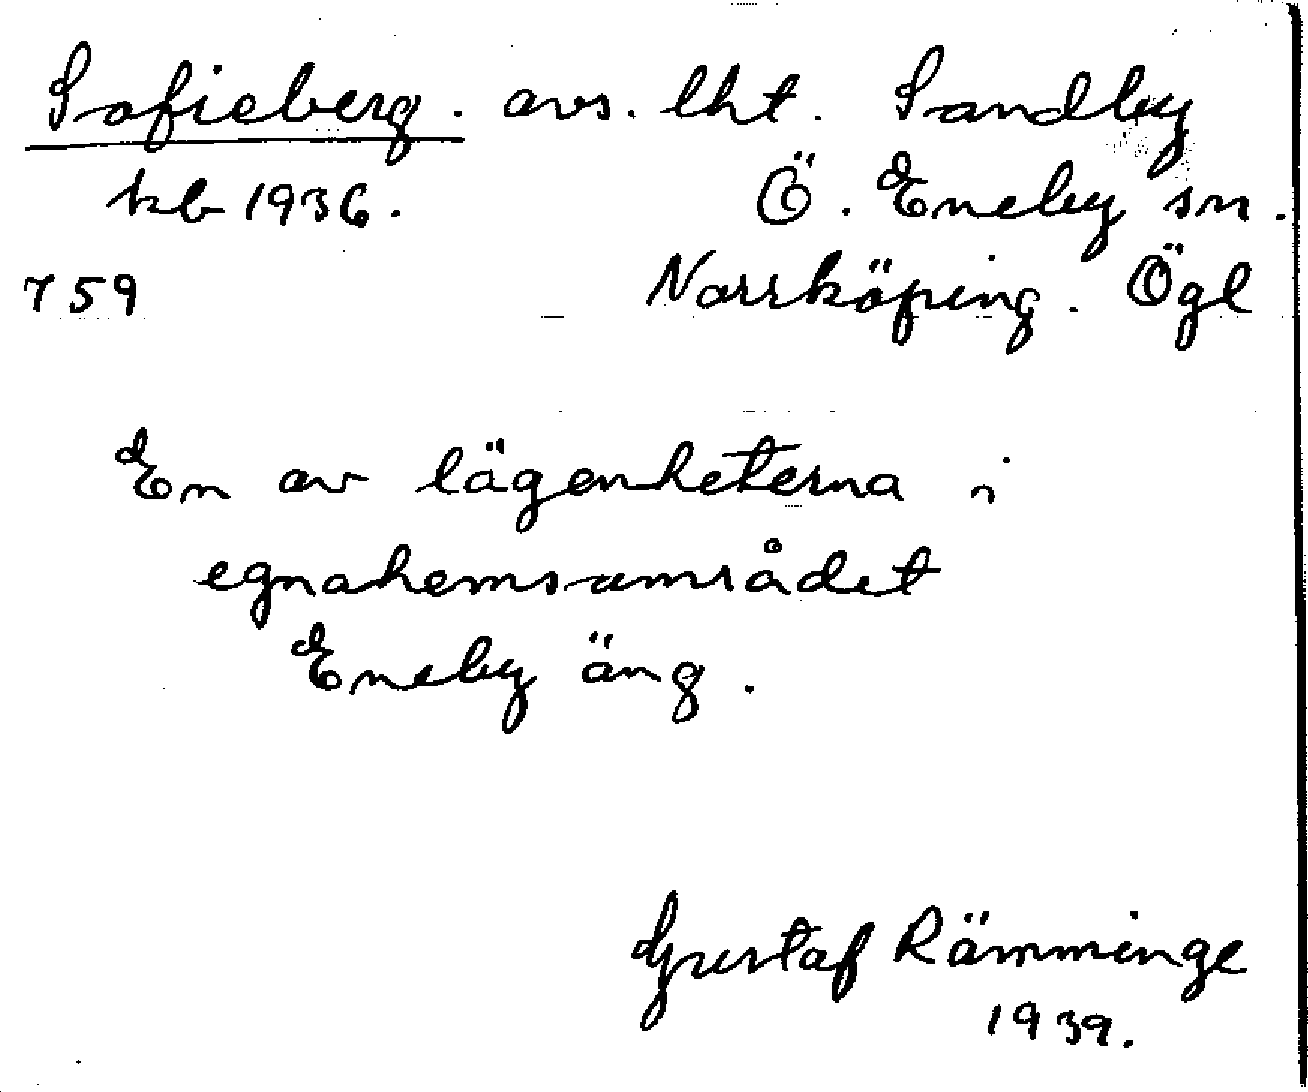 Sofieberg. avs. lht. Sandby
kb 1936. Ö. Eneby sn.
759 Norrköping. Ögl
En av lägenheterna i
egnahemsområdet
Eneby äng.
Gustaf Rämminge
1939.